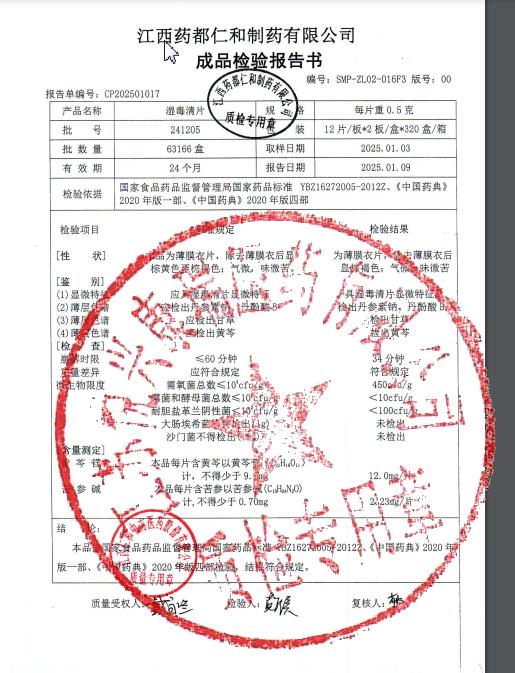 江西药都仁和制药有限公司
成品检验报告书
编号：SMP-ZL02-016F3 版号：00
报告单编号：CP202501017
产品名称 湿毒清片 规 格 每片重0.5克
批 号 241205 装 12片/板*2板/盒*320盒/箱
批数量 63166盒 取样日期 2025.01.03
有效期 24个月 报告日期 2025.01.09
检验依据 国家食品药品监督管理局国家药品标准 YBZ16272005-2012Z、《中国药典》
2020年版一部、《中国药典》2020年版四部
检验项目 规定 检验结果
[性 状] 本品为薄膜衣片，除去薄膜衣后显 为薄膜衣片，除去薄膜衣后
棕黄色至棕褐色；气微，味微苦。 显棕褐色；气微，味微苦
[鉴 别]
(1)显微特征 应具湿毒清片显微特征 具湿毒清片显微特征
(2)薄层色谱 应检出丹参素钠、丹酚酸B 检出丹参素钠、丹酚酸B
(3)薄层色谱 应检出甘草 检出甘草
(4)薄层色谱 应检出黄芩 检出黄芩
[检 查]
崩解时限 ≤60分钟 34分钟
重量差异 应符合规定 符合规定
微生物限度 需氧菌总数≤10 cfu/g 450cfu/g
霉菌和酵母菌总数≤10 cfu/g <10cfu/g
耐胆盐革兰阴性菌≤10 cfu/g <100cfu/g
大肠埃希菌 检出(1g) 未检出
沙门菌不得检出 未检出
含量测定]
黄芩苷 本品每片含黄芩以黄芩苷
计，不得少于9. 12.0mg/片
苦参碱 本品每片含苦参以苦参碱
计，不得少于0.70mg 2.23mg/片
结 论：
本品按国家食品药品监督管理局国家药品标准YBZ16272005-2012Z、《中国药典》2020年
版一部、《中国药典》2020年版四部检验，结果符合规定。
质量受权人： 检验人： 复核人：
江西药都仁和制药有限公司
质检专用章
质量专用章